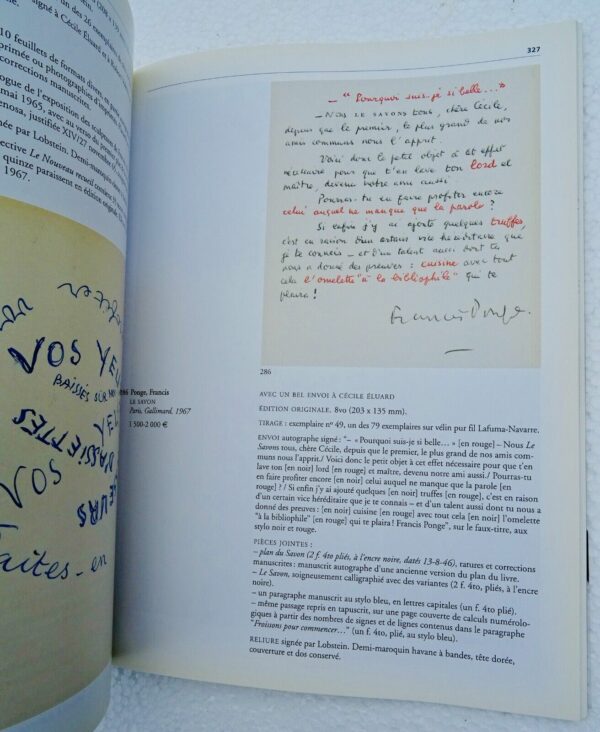 10 feuillets de formats divers, en
primée ou photographies d'
corrections manuscrites.
logue de l'exposition des sculptures de
mai 1965, avec au verso du
enosa, justifiée XIV/27
née par Lobstein. Demi-maroquin
ective Le Nouveau recueil contient
quinze paraissent en édition originale.
1967.
VOS YEU
BAISSÉS SUR
ASSIETTES
VOS
LEURS
Faites-en
327
— "Pourquoi suis-je si belle..."
– NOUS LE SAVONS tous, chère Cécile,
depuis que le premier, le plus grand de nos
amis communs nous l'apprit.
Voici donc le petit objet à cet effet
nécessaire pour que t'en lave ton lord et
maître, devenu notre ami aussi.
Pourras-tu en faire profiter encore
celui auquel ne manque que la parole ?
Si enfin j'y ai ajouté quelques truffes,
c'est en raison d'un certain vice héréditaire que
je te connais – et d'un talent aussi dont tu
nous a donné des preuves : cuisine avec tout
cela l'omelette "à la bibliophile" qui te
plaira !
Francis Ponge.
286
286 Ponge, Francis
LE SAVON
Paris, Gallimard, 1967
1 500-2 000 €
AVEC UN BEL ENVOI À CÉCILE ÉLUARD
ÉDITION ORIGINALE. 8vo (203 x 135 mm).
TIRAGE : exemplaire n° 49, un des 79 exemplaires sur vélin pur fil Lafuma-Navarre.
ENVOI autographe signé : "– « Pourquoi suis-je si belle... » [en rouge] – Nous Le
Savons tous, chère Cécile, depuis que le premier, le plus grand de nos amis com-
muns nous l'apprit./ Voici donc le petit objet à cet effet nécessaire pour que t'en
lave ton [en noir] lord [en rouge] et maître, devenu notre ami aussi./ Pourras-tu
en faire profiter encore [en noir] celui auquel ne manque que la parole [en
rouge] ? / Si enfin j'y ai ajouté quelques [en noir] truffes [en rouge], c'est en raison
d'un certain vice héréditaire que je te connais – et d'un talent aussi dont tu nous a
donné des preuves : [en noir] cuisine [en rouge] avec tout cela [en noir] l'omelette
"à la bibliophile" [en rouge] qui te plaira ! Francis Ponge", sur le faux-titre, aux
stylo noir et rouge.
PIÈCES JOINTES :
– plan du Savon (2 f. 4to pliés, à l'encre noire, datés 13-8-46), ratures et corrections
manuscrites : manuscrit autographe d'une ancienne version du plan du livre.
– Le Savon, soigneusement calligraphié avec des variantes (2 f. 4to, pliés, à l'encre
noire).
– un paragraphe manuscrit au stylo bleu, en lettres capitales (un f. 4to plié).
– même passage repris en tapuscrit, sur une page couverte de calculs numérolo-
giques à partir des nombres de signes et de lignes contenus dans le paragraphe
"Froissons pour commencer..." (un f. 4to, plié, au stylo bleu).
RELIURE signée par Lobstein. Demi-maroquin havane à bandes, tête dorée,
couverture et dos conservé.